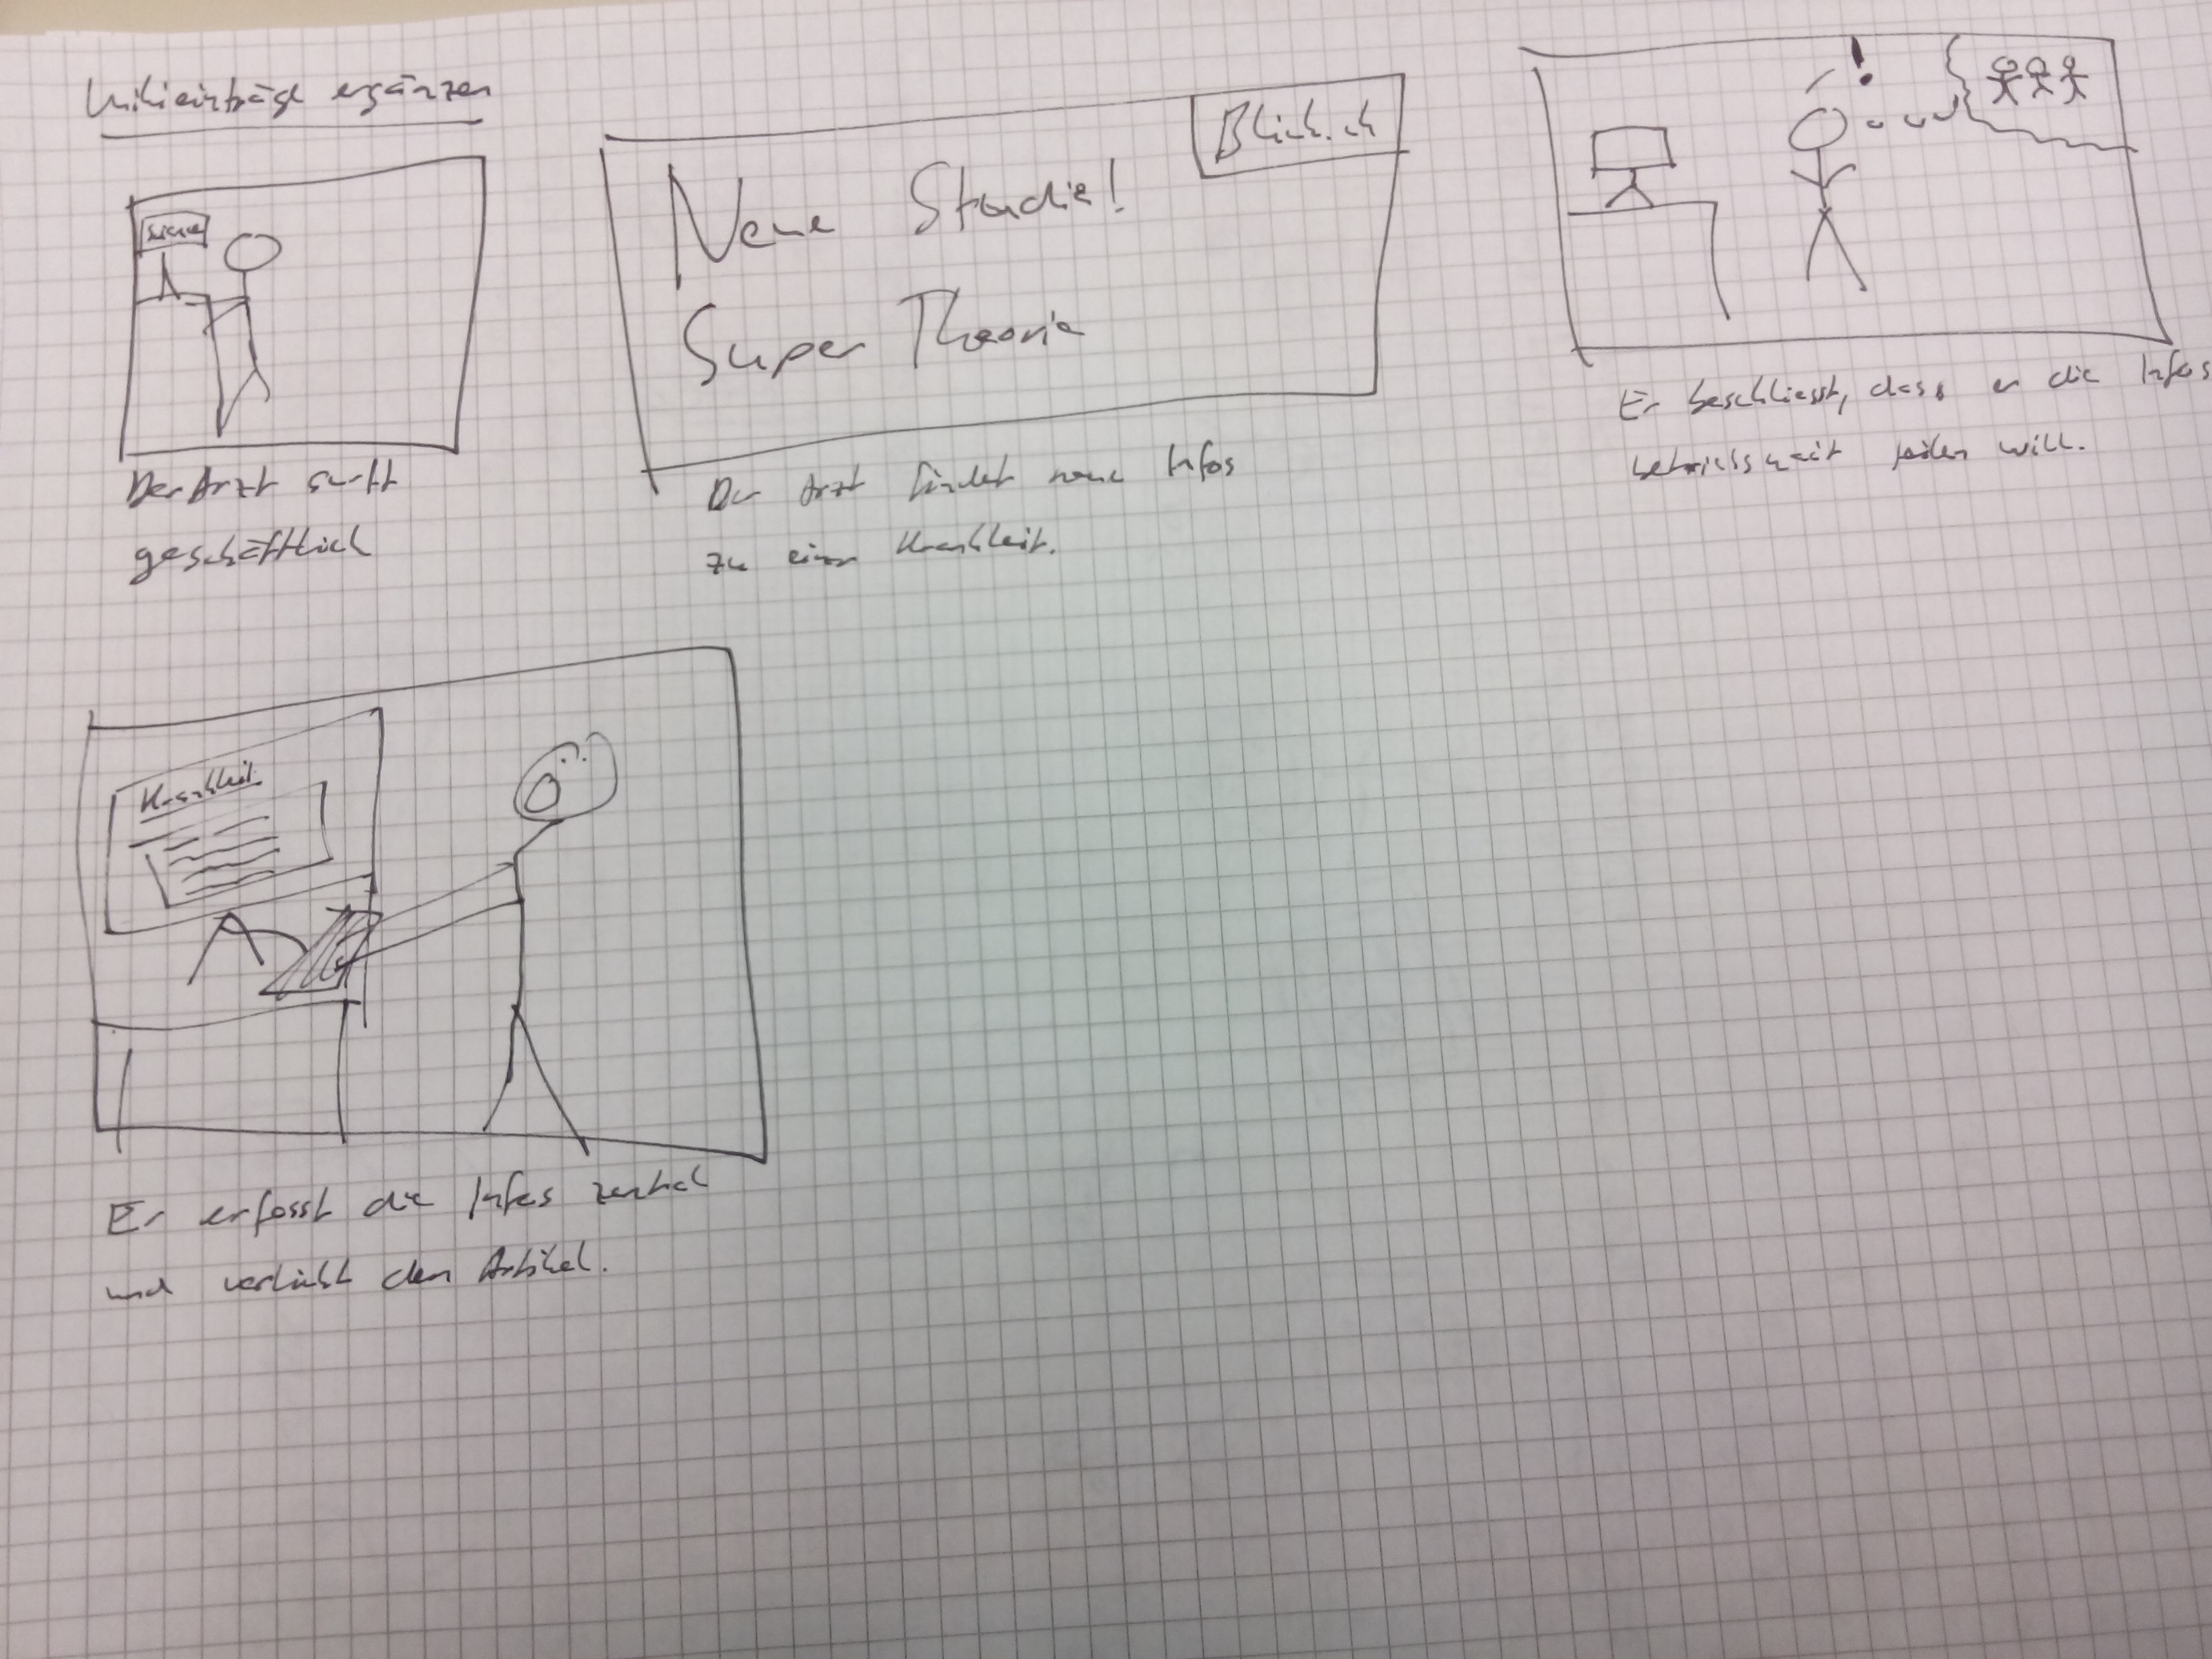 Wikieinträge ergänzen
Der Arzt surft
geschäftlich
Blick.ch
Neue Studie!
Super Theorie
Der Arzt findet neue Infos
zu einer Krankheit.
Er beschliesst, dass er die Infos
betriebsweit teilen will.
Krankheit
Er erfasst die Infos zentral
und verlinkt den Artikel.